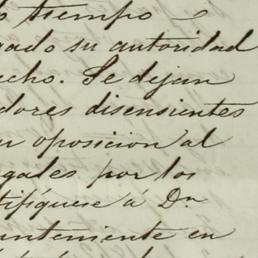 tiempo
gado su autoridad
cho. Se dejan
dores disensientes
su oposicion al
gales por los
tifíquese á Dn
anteniente en